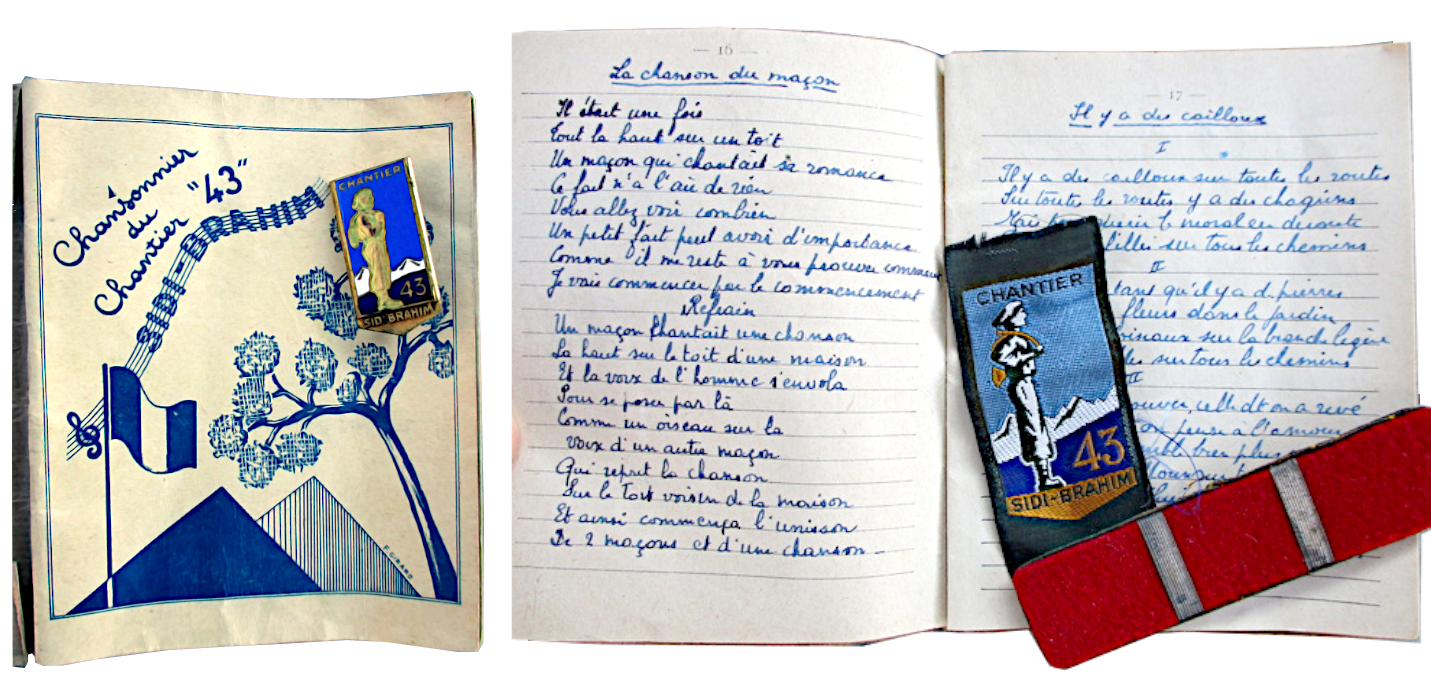 Chansonnier
du
Chantier "43"
SIDI-BRAHIM
CHANTIER
43
SIDI-BRAHIM
F. GIRARD
— 16 —
La chanson du maçon
Il était une fois
Tout la haut sur un toit
Un maçon qui chantait sa romance
Ce fait n'a l'air de rien
Vous allez voir combien
Un petit fait peut avoir d'importance
Comme il me reste à vous
Je vais commencer par le commencement
Refrain
Un maçon chantait une chanson
La haut sur le toit d'une maison
Et la voix de l'homme s'envola
Pour se poser par là
Comme un oiseau sur la
voix d'un autre maçon
Qui reprit la chanson
Sur le toit voisin de la maison
Et ainsi commença l'unisson
De 2 maçons et d'une chanson -
— 17 —
Il y a des cailloux
I
Il y a des cailloux sur toutes les routes
Sur toutes les routes y a des chagrins
le moral en déroute
filles sur tous les chemins
II
tant qu'il y a d. pierres
fleurs dans le jardin
oiseaux sur la branche légère
sur tous les chemins
celle dt on a rêvé
on pense à l'amour
bien plus
CHANTIER
43
SIDI-BRAHIM